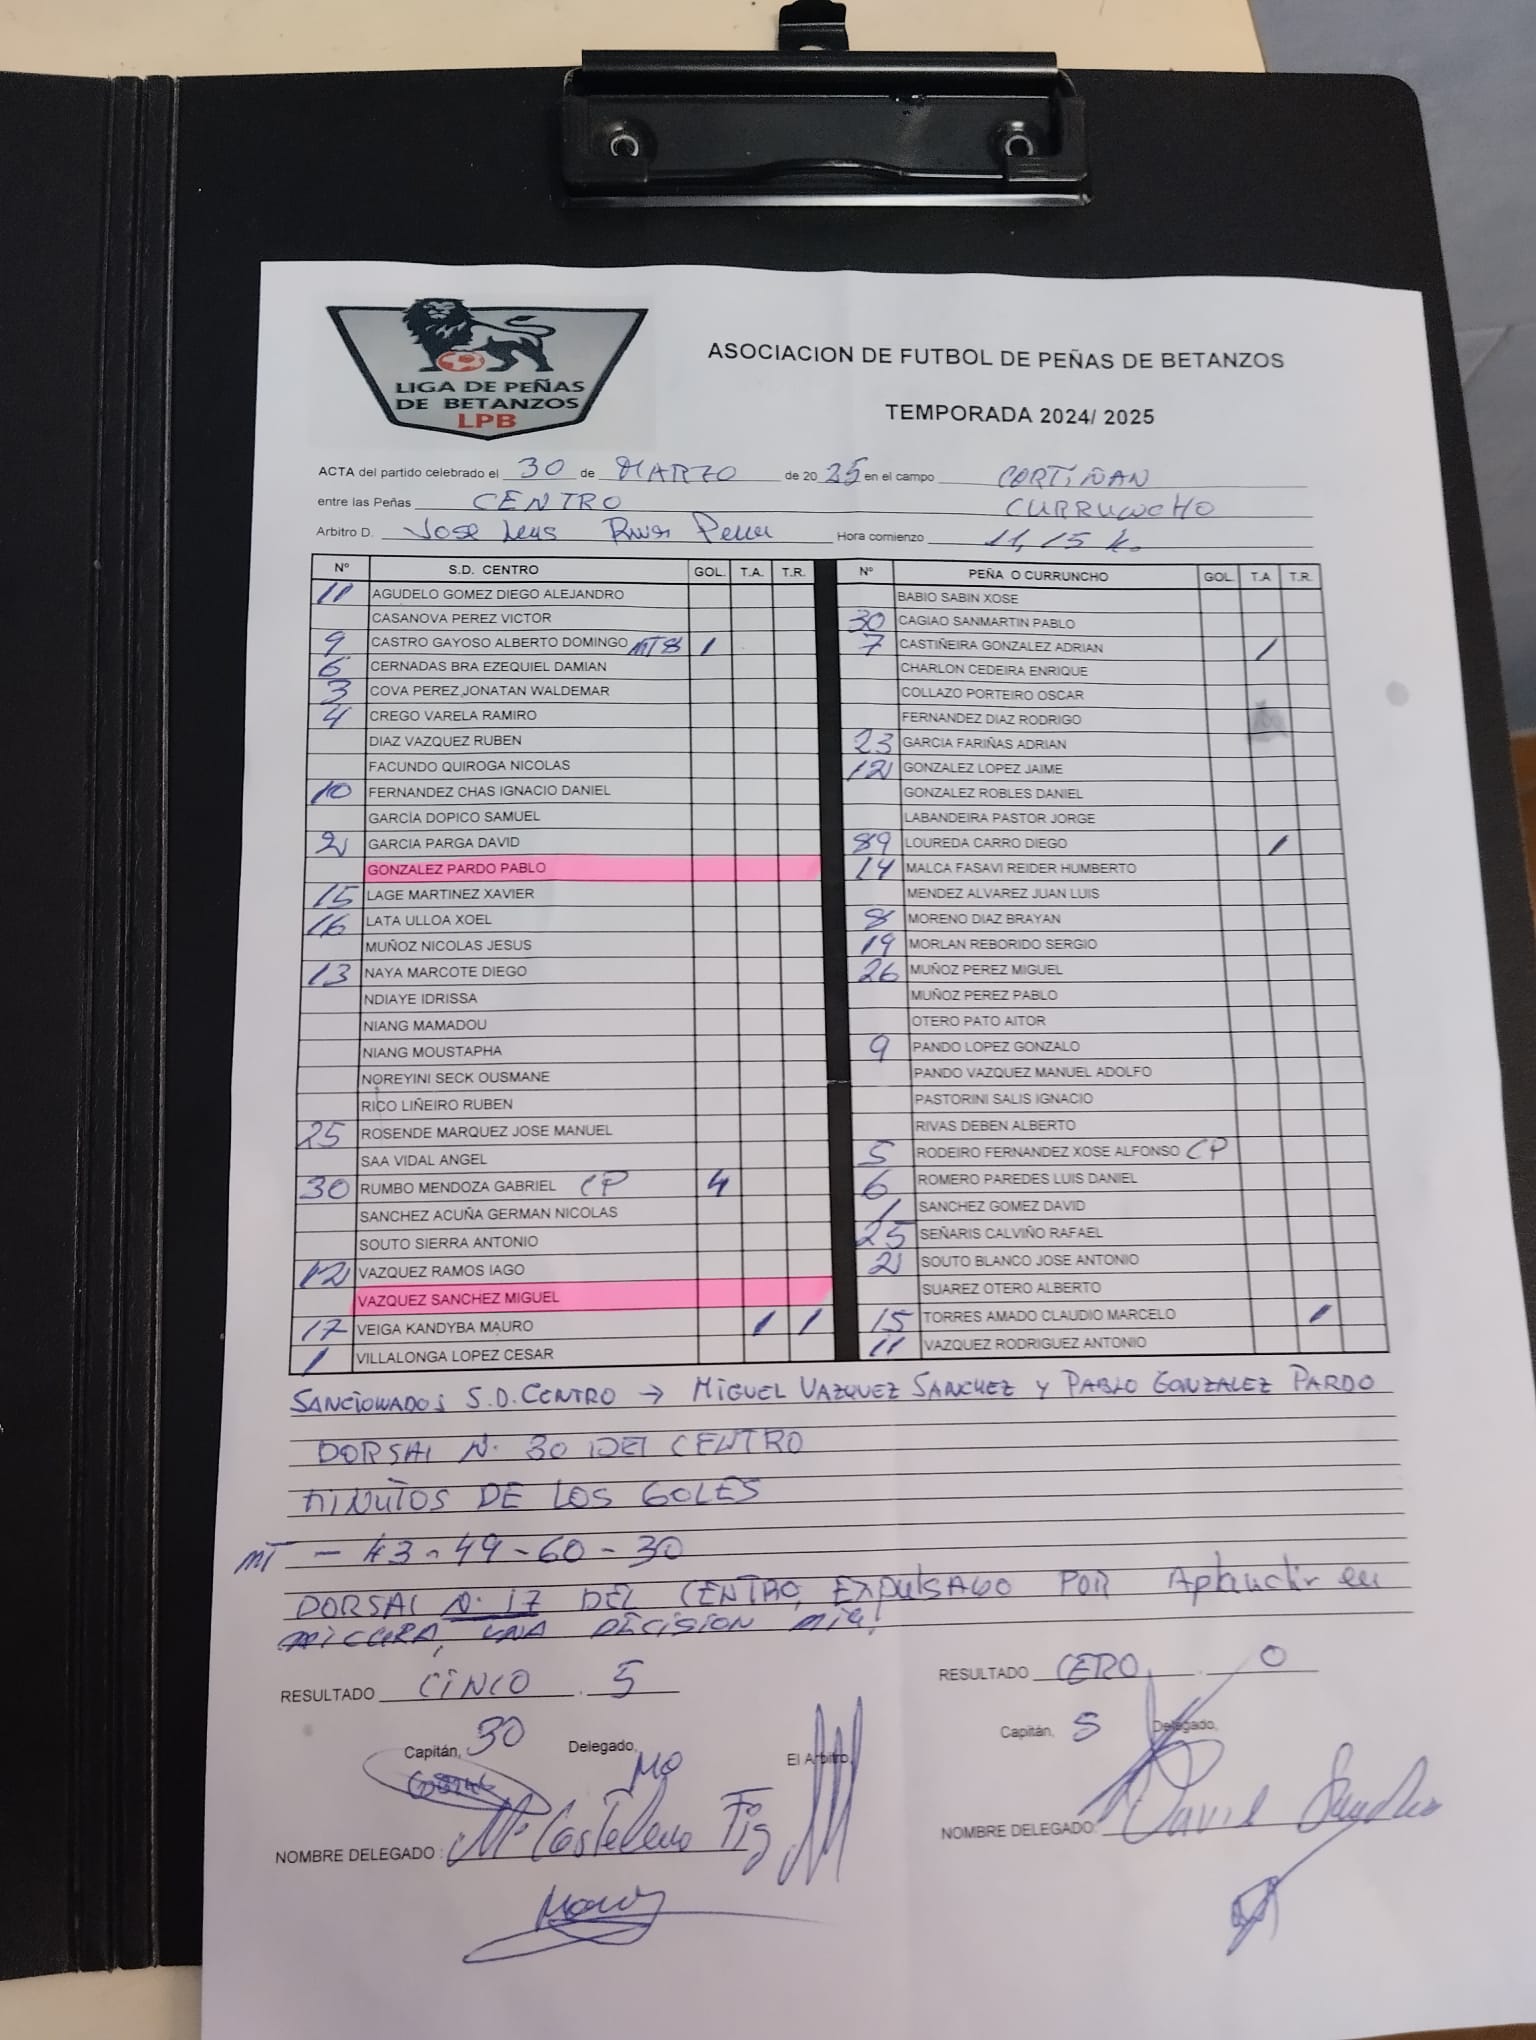 LIGA DE PEÑAS
DE BETANZOS
LPB
ASOCIACION DE FUTBOL DE PEÑAS DE BETANZOS
TEMPORADA 2024/ 2025
ACTA del partido celebrado el 30 de MARZO de 20 25 en el campo CORTIÑAN
entre las Peñas CENTRO CURRUNCHO
Arbitro D. Jose Luis Rivas Pena Hora comienzo 11,15 h.
Nº S.D. CENTRO GOL. T.A. T.R. Nº PEÑA O CURRUNCHO GOL. T.A T.R.
11 AGUDELO GOMEZ DIEGO ALEJANDRO BABIO SABIN XOSE
CASANOVA PEREZ VICTOR 30 CAGIAO SANMARTIN PABLO
9 CASTRO GAYOSO ALBERTO DOMINGO MT 8 1 7 CASTIÑEIRA GONZALEZ ADRIAN /
6 CERNADAS BRA EZEQUIEL DAMIAN CHARLON CEDEIRA ENRIQUE
3 COVA PEREZ JONATAN WALDEMAR COLLAZO PORTEIRO OSCAR
4 CREGO VARELA RAMIRO FERNANDEZ DIAZ RODRIGO
DIAZ VAZQUEZ RUBEN 23 GARCIA FARIÑAS ADRIAN
FACUNDO QUIROGA NICOLAS 12 GONZALEZ LOPEZ JAIME
10 FERNANDEZ CHAS IGNACIO DANIEL GONZALEZ ROBLES DANIEL
GARCÍA DOPICO SAMUEL LABANDEIRA PASTOR JORGE
2 GARCIA PARGA DAVID 89 LOUREDA CARRO DIEGO /
GONZALEZ PARDO PABLO 14 MALCA FASAVI REIDER HUMBERTO
15 LAGE MARTINEZ XAVIER MENDEZ ALVAREZ JUAN LUIS
16 LATA ULLOA XOEL 8 MORENO DIAZ BRAYAN
MUÑOZ NICOLAS JESUS 19 MORLAN REBORIDO SERGIO
13 NAYA MARCOTE DIEGO 26 MUÑOZ PEREZ MIGUEL
NDIAYE IDRISSA MUÑOZ PEREZ PABLO
NIANG MAMADOU OTERO PATO AITOR
NIANG MOUSTAPHA 9 PANDO LOPEZ GONZALO
NOREYINI SECK OUSMANE PANDO VAZQUEZ MANUEL ADOLFO
RICO LIÑEIRO RUBEN PASTORINI SALIS IGNACIO
25 ROSENDE MARQUEZ JOSE MANUEL RIVAS DEBEN ALBERTO
SAA VIDAL ANGEL 5 RODEIRO FERNANDEZ XOSE ALFONSO CP
30 RUMBO MENDOZA GABRIEL CP 4 6 ROMERO PAREDES LUIS DANIEL
SANCHEZ ACUÑA GERMAN NICOLAS 1 SANCHEZ GOMEZ DAVID
SOUTO SIERRA ANTONIO 25 SEÑARIS CALVIÑO RAFAEL
12 VAZQUEZ RAMOS IAGO 2 SOUTO BLANCO JOSE ANTONIO
VAZQUEZ SANCHEZ MIGUEL SUAREZ OTERO ALBERTO
17 VEIGA KANDYBA MAURO 1 1 15 TORRES AMADO CLAUDIO MARCELO /
1 VILLALONGA LOPEZ CESAR 11 VAZQUEZ RODRIGUEZ ANTONIO
SANCIONADOS S.D. CENTRO → MIGUEL VAZQUEZ SANCHEZ Y PABLO GONZALEZ PARDO
DORSAL N. 30 DEL CENTRO
MINUTOS DE LOS GOLES
MT - 43 - 49 - 60 - 30
DORSAL N. 17 DEL CENTRO, EXPULSADO POR Aplaudir en
mi CARA, UNA DECISION MIA!
RESULTADO CINCO . 5 RESULTADO CERO . 0
Capitán, 30 Delegado, El Arbitro, Capitán, 5 Delegado,
NOMBRE DELEGADO : NOMBRE DELEGADO: David